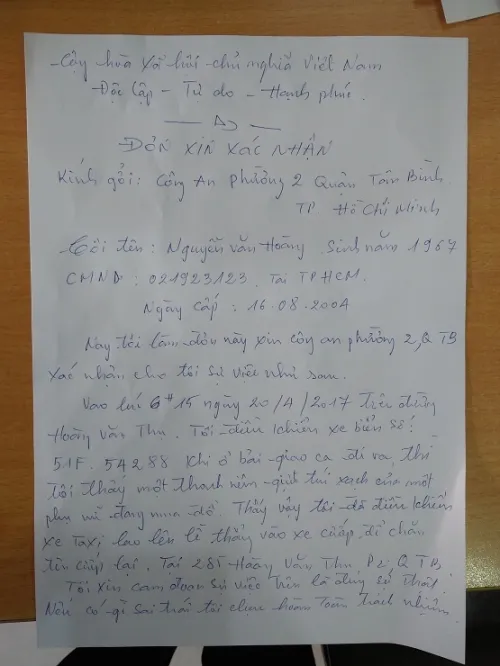 - Cộng hòa xã hội chủ nghĩa Việt Nam
- Độc lập - Tự do - Hạnh phúc.
ĐƠN XIN XÁC NHẬN
Kính gởi: Công An phường 2 Quận Tân Bình
TP Hồ Chí Minh
Tôi tên: Nguyễn văn Hoàng Sinh năm 1967
CMND: 021923123. Tại TPHCM.
Ngày cấp: 16.08.2004
Nay tôi làm đơn này xin công an phường 2, Q TB
xác nhận cho tôi sự việc như sau.
Vào lúc 6H15 ngày 20/4/2017 trên đường
Hoàng văn Thụ. Tôi điều khiển xe biển số:
51F. 54288 Khi ở bãi giao ca đi ra, thì
tôi thấy một thanh niên giựt túi xạch của một
phụ nữ đang mua đồ. Thấy vậy tôi đã điều khiển
xe taxi lao lên lề thẳng vào xe cướp, để chặn
tên cướp lại. Tại 285 Hoàng Văn Thụ, P2, Q TB.
Tôi xin cam đoan sự việc trên là đúng sự thật
Nếu có gì sai trái tôi chịu hoàn toàn trách nhiệm.